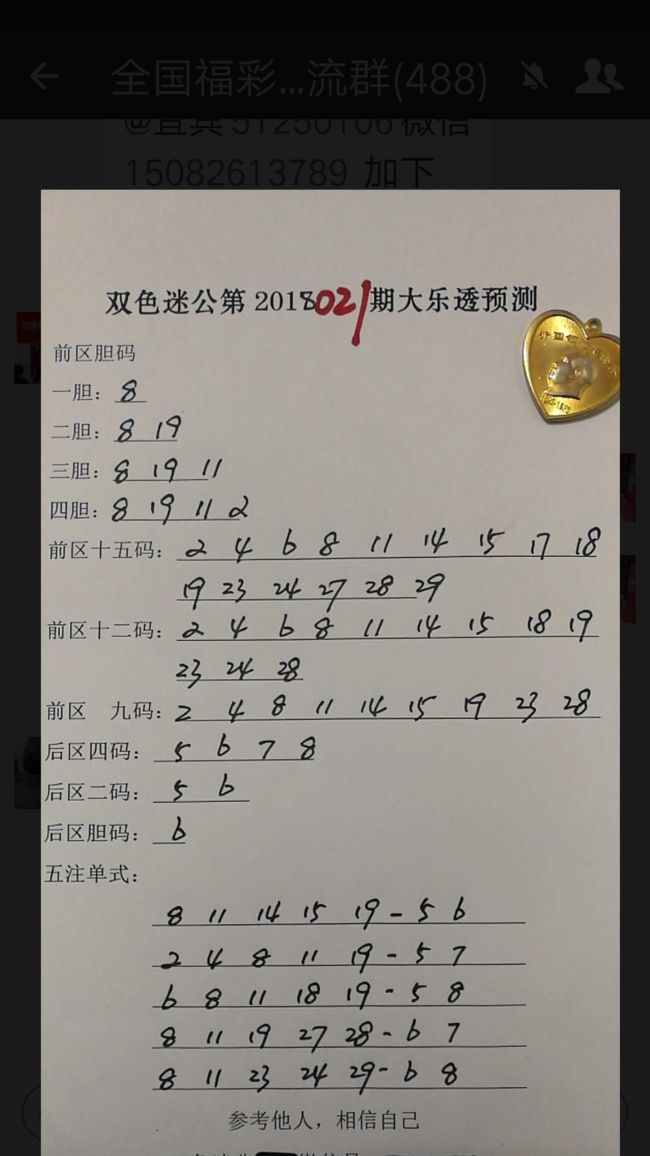 全国福彩...流群(488)
15082613789 加下
双色迷公第2018021期大乐透预测
前区胆码
一胆：8
二胆：8 19
三胆：8 19 11
四胆：8 19 11 2
前区十五码：2 4 6 8 11 14 15 17 18
19 23 24 27 28 29
前区十二码：2 4 6 8 11 14 15 18 19
23 24 28
前区 九码：2 4 8 11 14 15 19 23 28
后区四码：5 6 7 8
后区二码：5 6
后区胆码：6
五注单式：
8 11 14 15 19 - 5 6
2 4 8 11 19 - 5 7
6 8 11 18 19 - 5 8
8 11 19 27 28 - 6 7
8 11 23 24 29 - 6 8
参考他人，相信自己